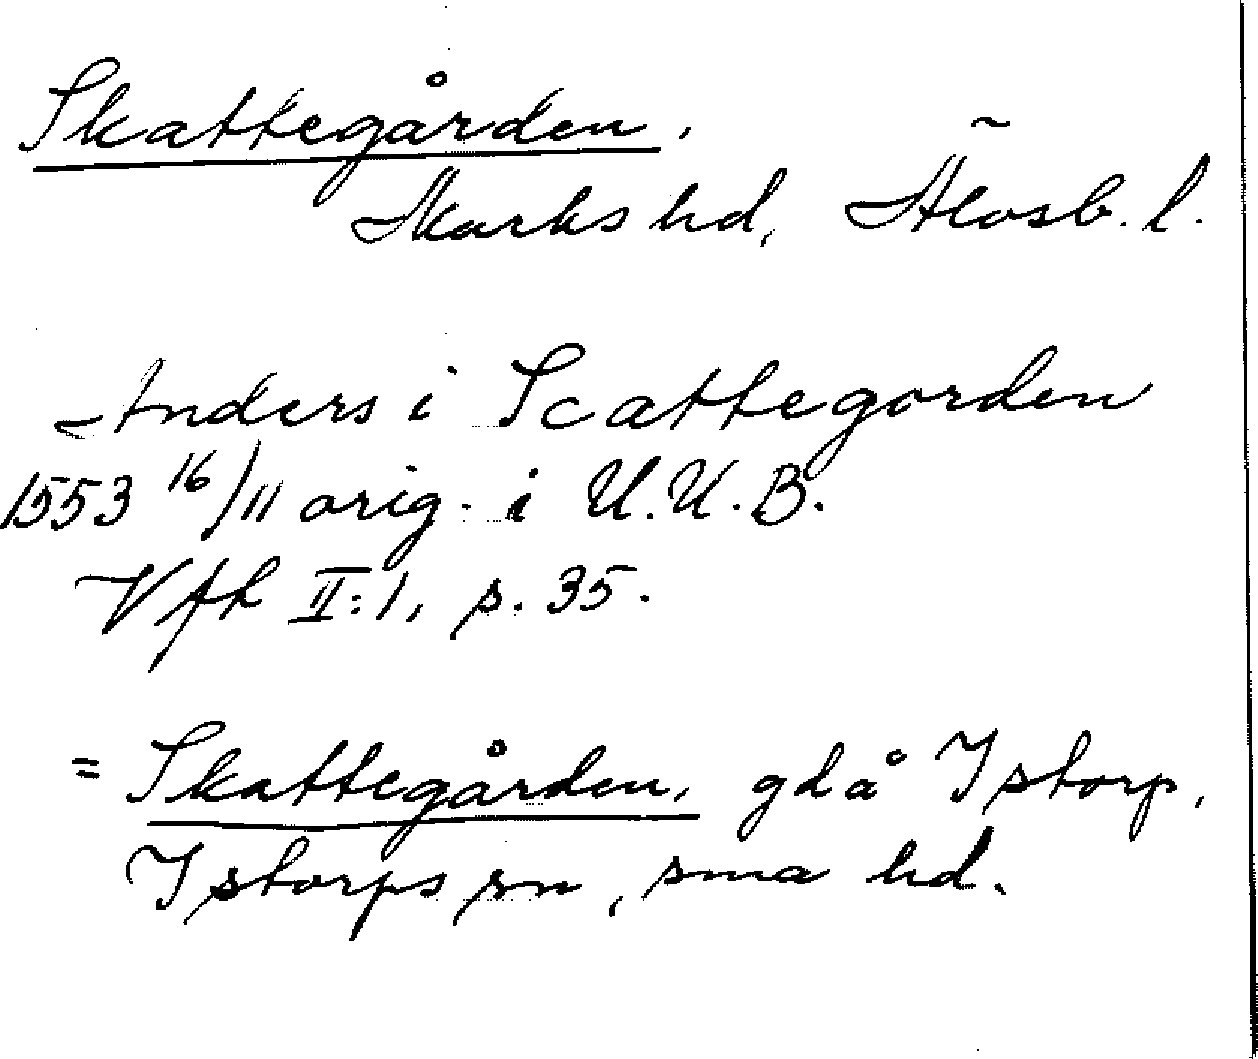 Skattegården.
Marks hd, Älvsb. l.
Anders i Scattegorden
1553 16/11 orig. i U.U.B.
Vfh II:1, s. 35.
= Skattegården, gd å Istorp,
Istorps sn, sma hd.